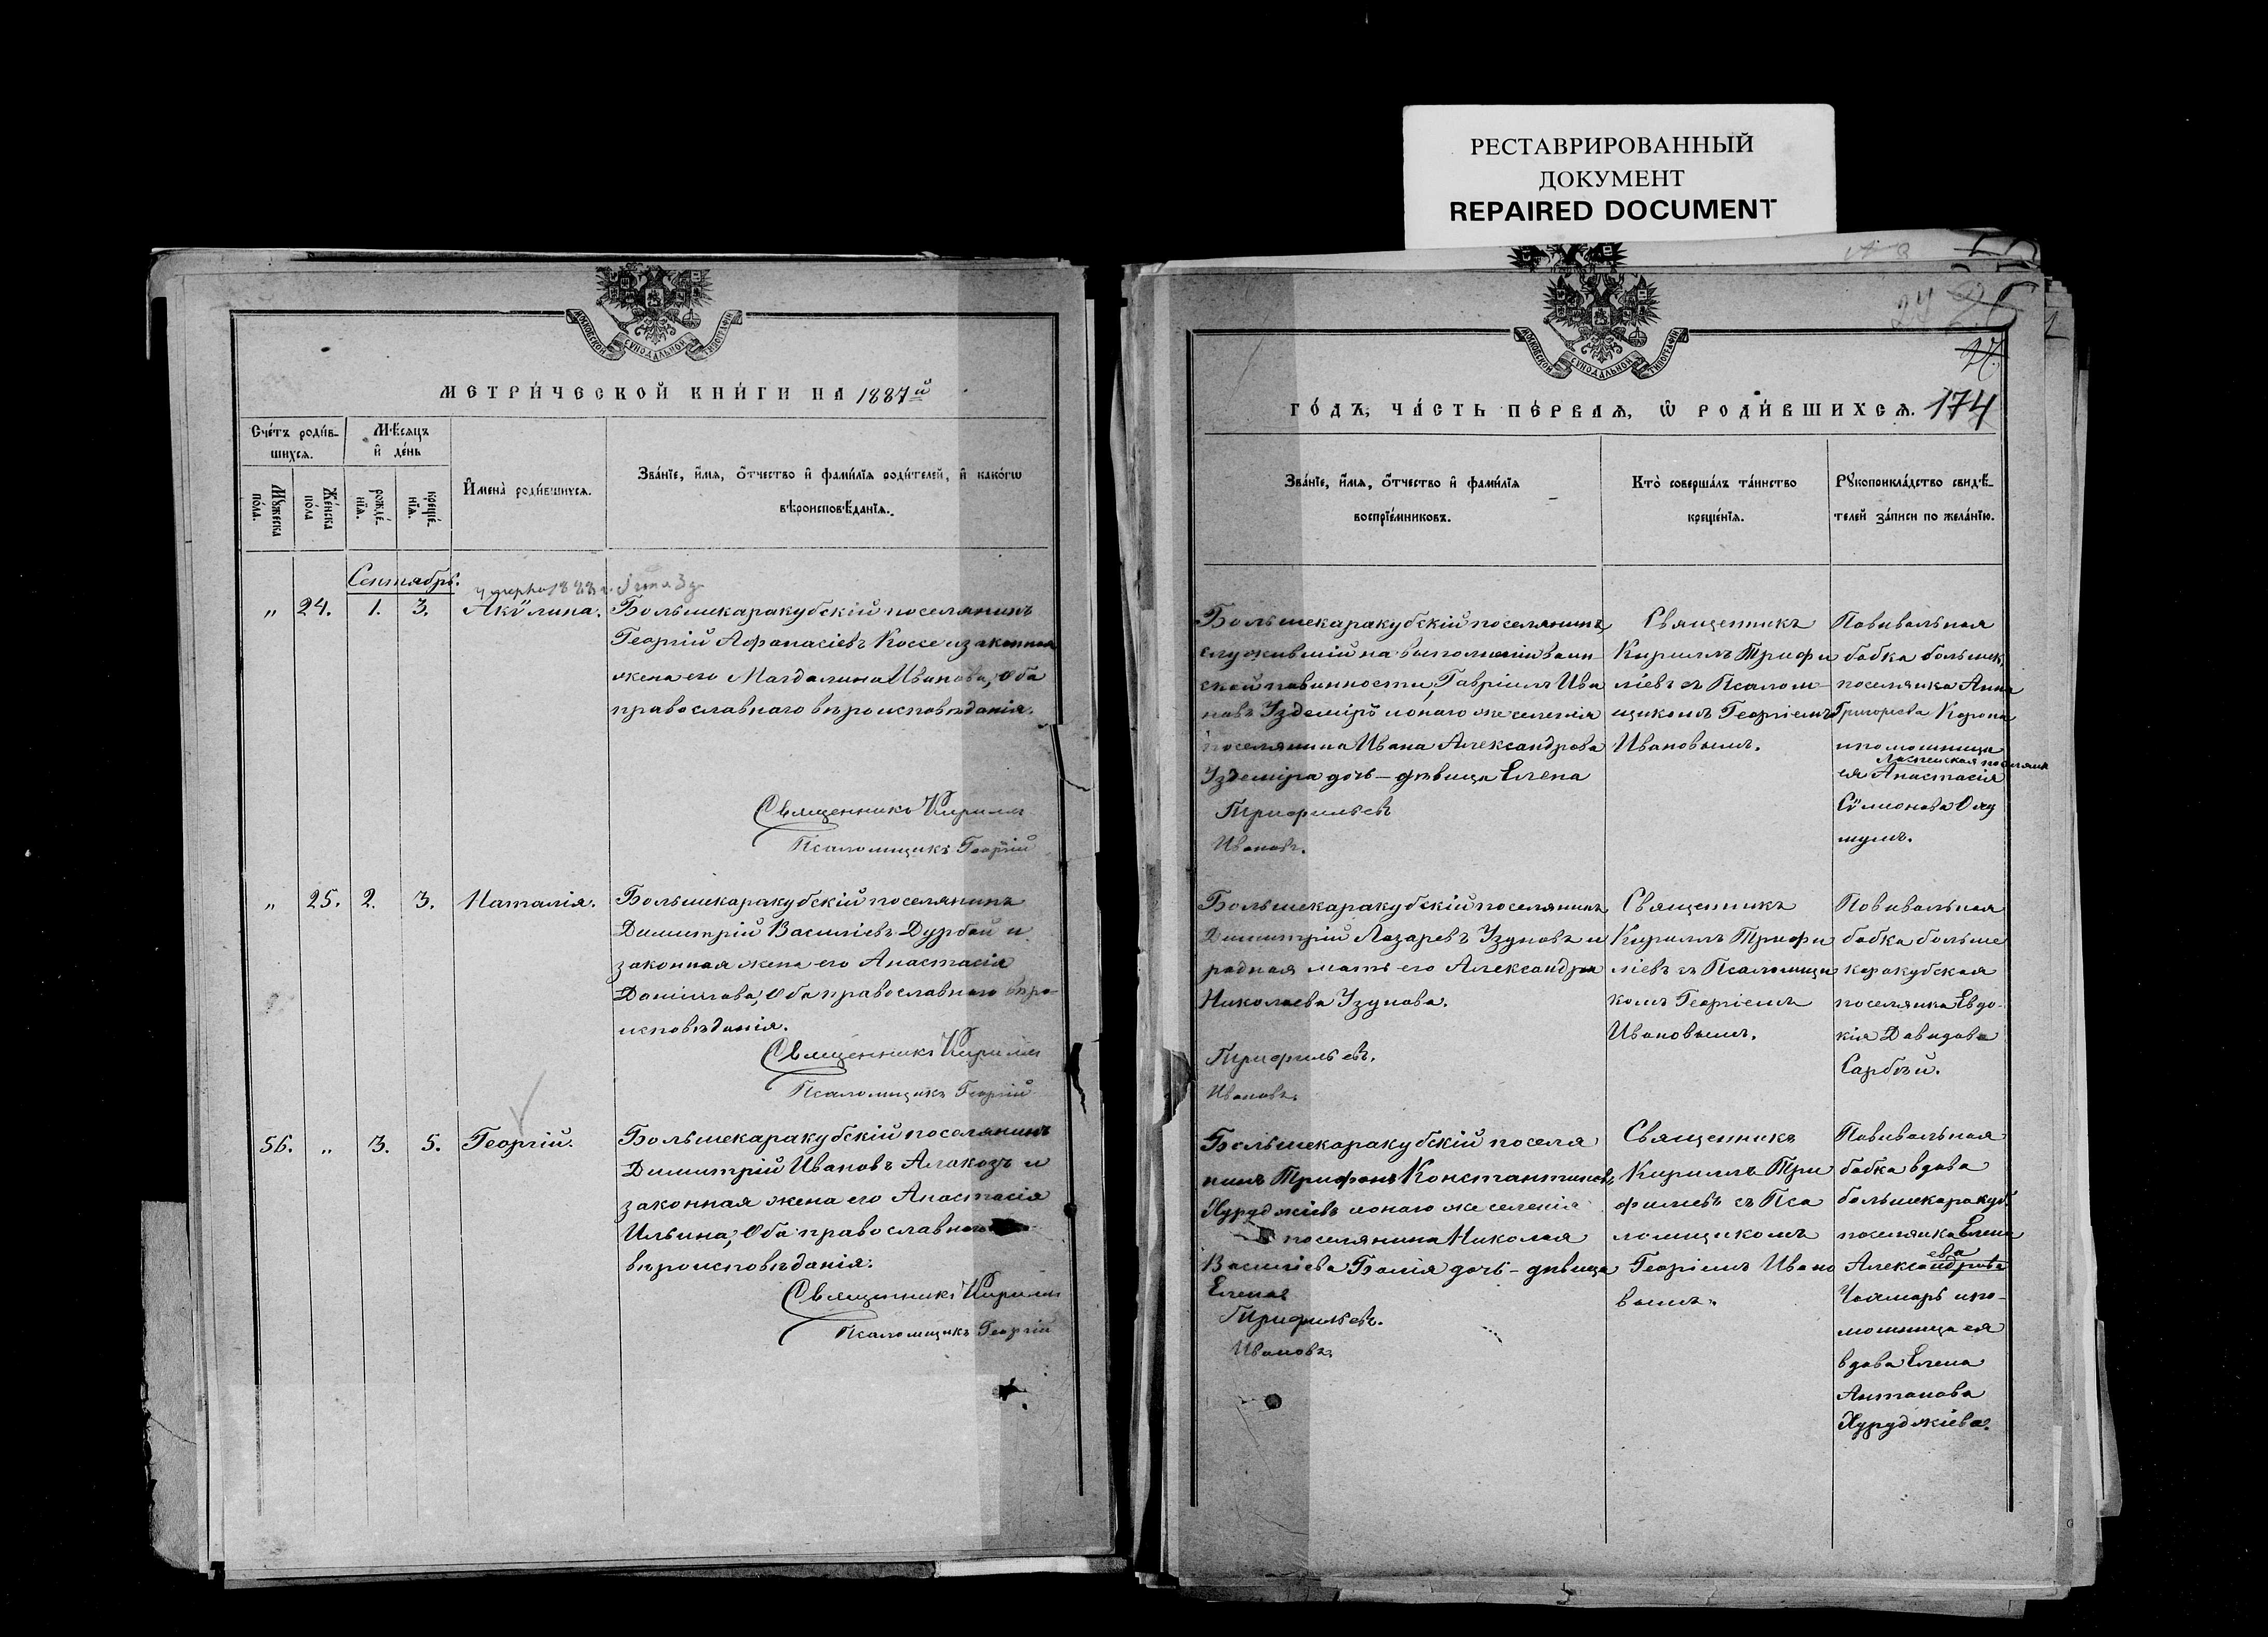 РЕСТАВРИРОВАННЫЙ
ДОКУМЕНТ
REPAIRED DOCUMENT
МОСКОВСКОЙ СѴНОДАЛЬНОЙ ТИПОГРАФІИ
МЕТРИ́ЧЕСКОЙ КНИ́ГИ НА 1887й
Сче́тъ роди́в-
шихсѧ.
Мѣ́сѧцъ
и҆ де́нь
Мꙋ́жеска
по́ла.
Же́нска
по́ла
рожде́-
нїѧ.
креще́-
нїѧ.
И҆мена̀ роди́вшихсѧ.
Зва́нїе, и҆́мѧ, ѻ҆́тчество и҆ фами́лїѧ роди́телей, и҆ како́гѡ
вѣроисповѣ́данїѧ.
Сентябрь.
„ 24. 1. 3. Акѵлина.
Большекаракубскій поселянинъ
Георгій Афанасіевъ Коссе и законная
жена его Магдалина Иванова, Оба
православнаго вѣроисповѣданія.
Священникъ Кириллъ
Псаломщикъ Георгій
„ 25. 2. 3. Наталія.
Большекаракубскій поселянинъ
Димитрій Василіевъ Дурбай и
законная жена его Анастасія
Даніилова, Оба православнаго вѣро-
исповѣданія.
Священникъ Кириллъ
Псаломщикъ Георгій
56. „ 3. 5. Георгій.
Большекаракубскій поселянинъ
Димитрій Ивановъ Алакозъ и
законная жена его Анастасія
Ильина, Оба православнаго
вѣроисповѣданія.
Священникъ Кириллъ
Псаломщикъ Георгій
МОСКОВСКОЙ СѴНОДАЛЬНОЙ ТИПОГРАФІИ
24
ГО́ДЪ, ЧА́СТЬ ПЕ́РВАѦ, Ѡ҆ РОДИ́ВШИХСѦ. 174
Зва́нїе, и҆́мѧ, ѻ҆́тчество и҆ фами́лїѧ
воспрїе́мниковъ.
Кто̀ соверша́лъ та́инство
креще́нїѧ.
Рꙋкоприкла́дство свидѣ́-
телей за́писи по жела́нїю.
Большекаракубскій поселянинъ,
служившій на выполненіи воин-
ской повинности, Гавріилъ Ива
новъ Уздеміръ и онаго же селенія
поселянина Ивана Александрова
Уздеміра дочь – дѣвица Елена
Трифильевъ
Ивановъ.
Священникъ
Кириллъ Трифи
ліевъ съ Псалом-
щикомъ Георгіемъ
Ивановымъ.
Повивальная
бабка большек.
поселянка Анна
Григорьева Корона
и помошница
Ласпинская поселянк
ея Анастасія
Сѵмонова
Большекаракубскій поселянинъ
Димитрій Лазаревъ Узуновъ и
родная мать его Александра
Николаева Узунова.
Трифильевъ.
Ивановъ.
Священникъ
Кириллъ Трифи
ліевъ съ Псаломщи
комъ Георгіемъ
Ивановымъ.
Повивальная
бабка больше
каракубская
поселянка Евдо-
кія Давидова
Сарбѣй.
Большекаракубскій поселя
нинъ Трифонъ Константиновъ
Хуруджіевъ и онаго же селенія
поселянина Николая
Василіева Балія дочь – дѣвица
Елена
Трифильевъ.
Ивановъ.
Священникъ
Кириллъ Три
филіевъ съ Пса
ломщикомъ
Георгіемъ Ивано
вымъ.
Повивальная
бабка вдова
большекаракуб.
поселянка Елена
ева
Александрова
Чалмаръ и по-
мошница ея
вдова Елена
Антонова
Хуруджіева.